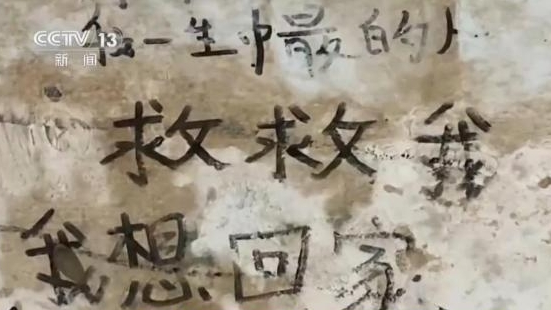 CCTV 13
新闻
一生中最的人
救救我
我想回家